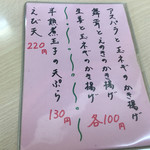 アスパラと玉ネギのかき揚げ
舞茸とえのきのかき揚げ
生姜と玉ネギのかき揚げ
各100円
半熟煮玉子の天ぷら
130円
えび天
220円